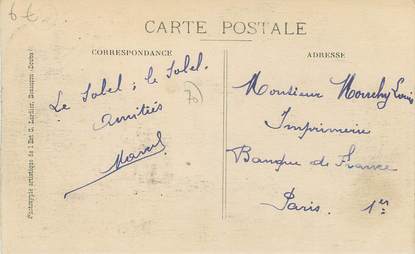 6€
CARTE POSTALE
CORRESPONDANCE
ADRESSE
Le Soleil ; le Soleil.
Amitiés
Marcel
70
Monsieur Louis
Imprimerie
Banque de France
Paris. 1er
Phototypie artistique de l'Ent C. Lardier, Besançon (Doubs)